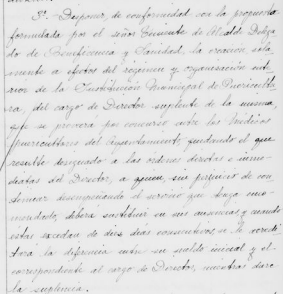 3º.- Disponer, de conformidad con la propuesta
formulada por el señor Teniente de Alcalde Delega
do de Beneficencia y Sanidad, la creación, sola
mente a efectos del régimen y organización inte
rior de la Institución Municipal de Puericultu
ra, del cargo de Director suplente de la misma,
que se proveerá por concurso entre los Médicos
puericultores del Ayuntamiento, quedando el que
resulte designado a las ordenes directas e inme
diatas del Director, a quien, sin perjuicio de con
tinuar desempeñando el servicio que tenga enco
mendado, deberá sustituir en sus ausencias y cuando
estas excedan de diez dias consecutivos, se le acredi
tará la diferencia entre su sueldo inicial y el
correspondiente al cargo de Director, mientras dure
la suplencia.